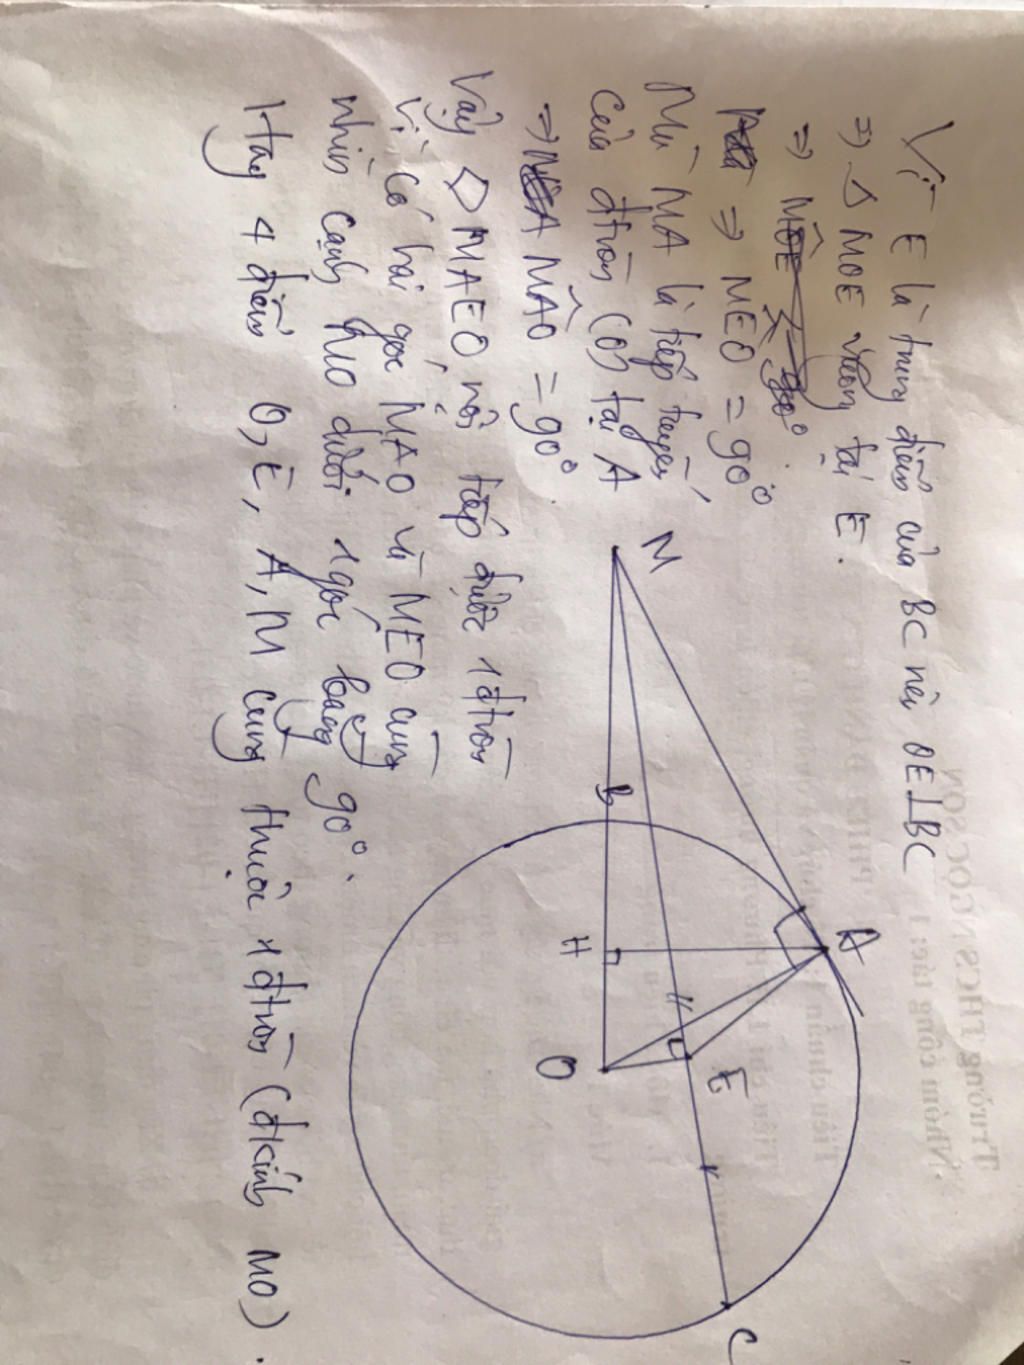 Vì E là trung điểm của BC nên OE⊥BC
⇒ Δ MOE vuông tại E.
⇒ MOE = 90°
⇒ MEO = 90°
Mà MA là tiếp tuyến
của đtròn (O) tại A
⇒ MÂO = 90°.
Vậy ◇ MAEO nội tiếp được 1 đtròn
Vì có hai góc MAO và MEO cùng
nhìn cạnh MO dưới 1 góc bằng 90°.
Hay 4 điểm O, E, A, M cùng thuộc 1 đtròn (đkính MO).
M
B
A
H
O
E
C
Trường THCS NGỌC SƠN